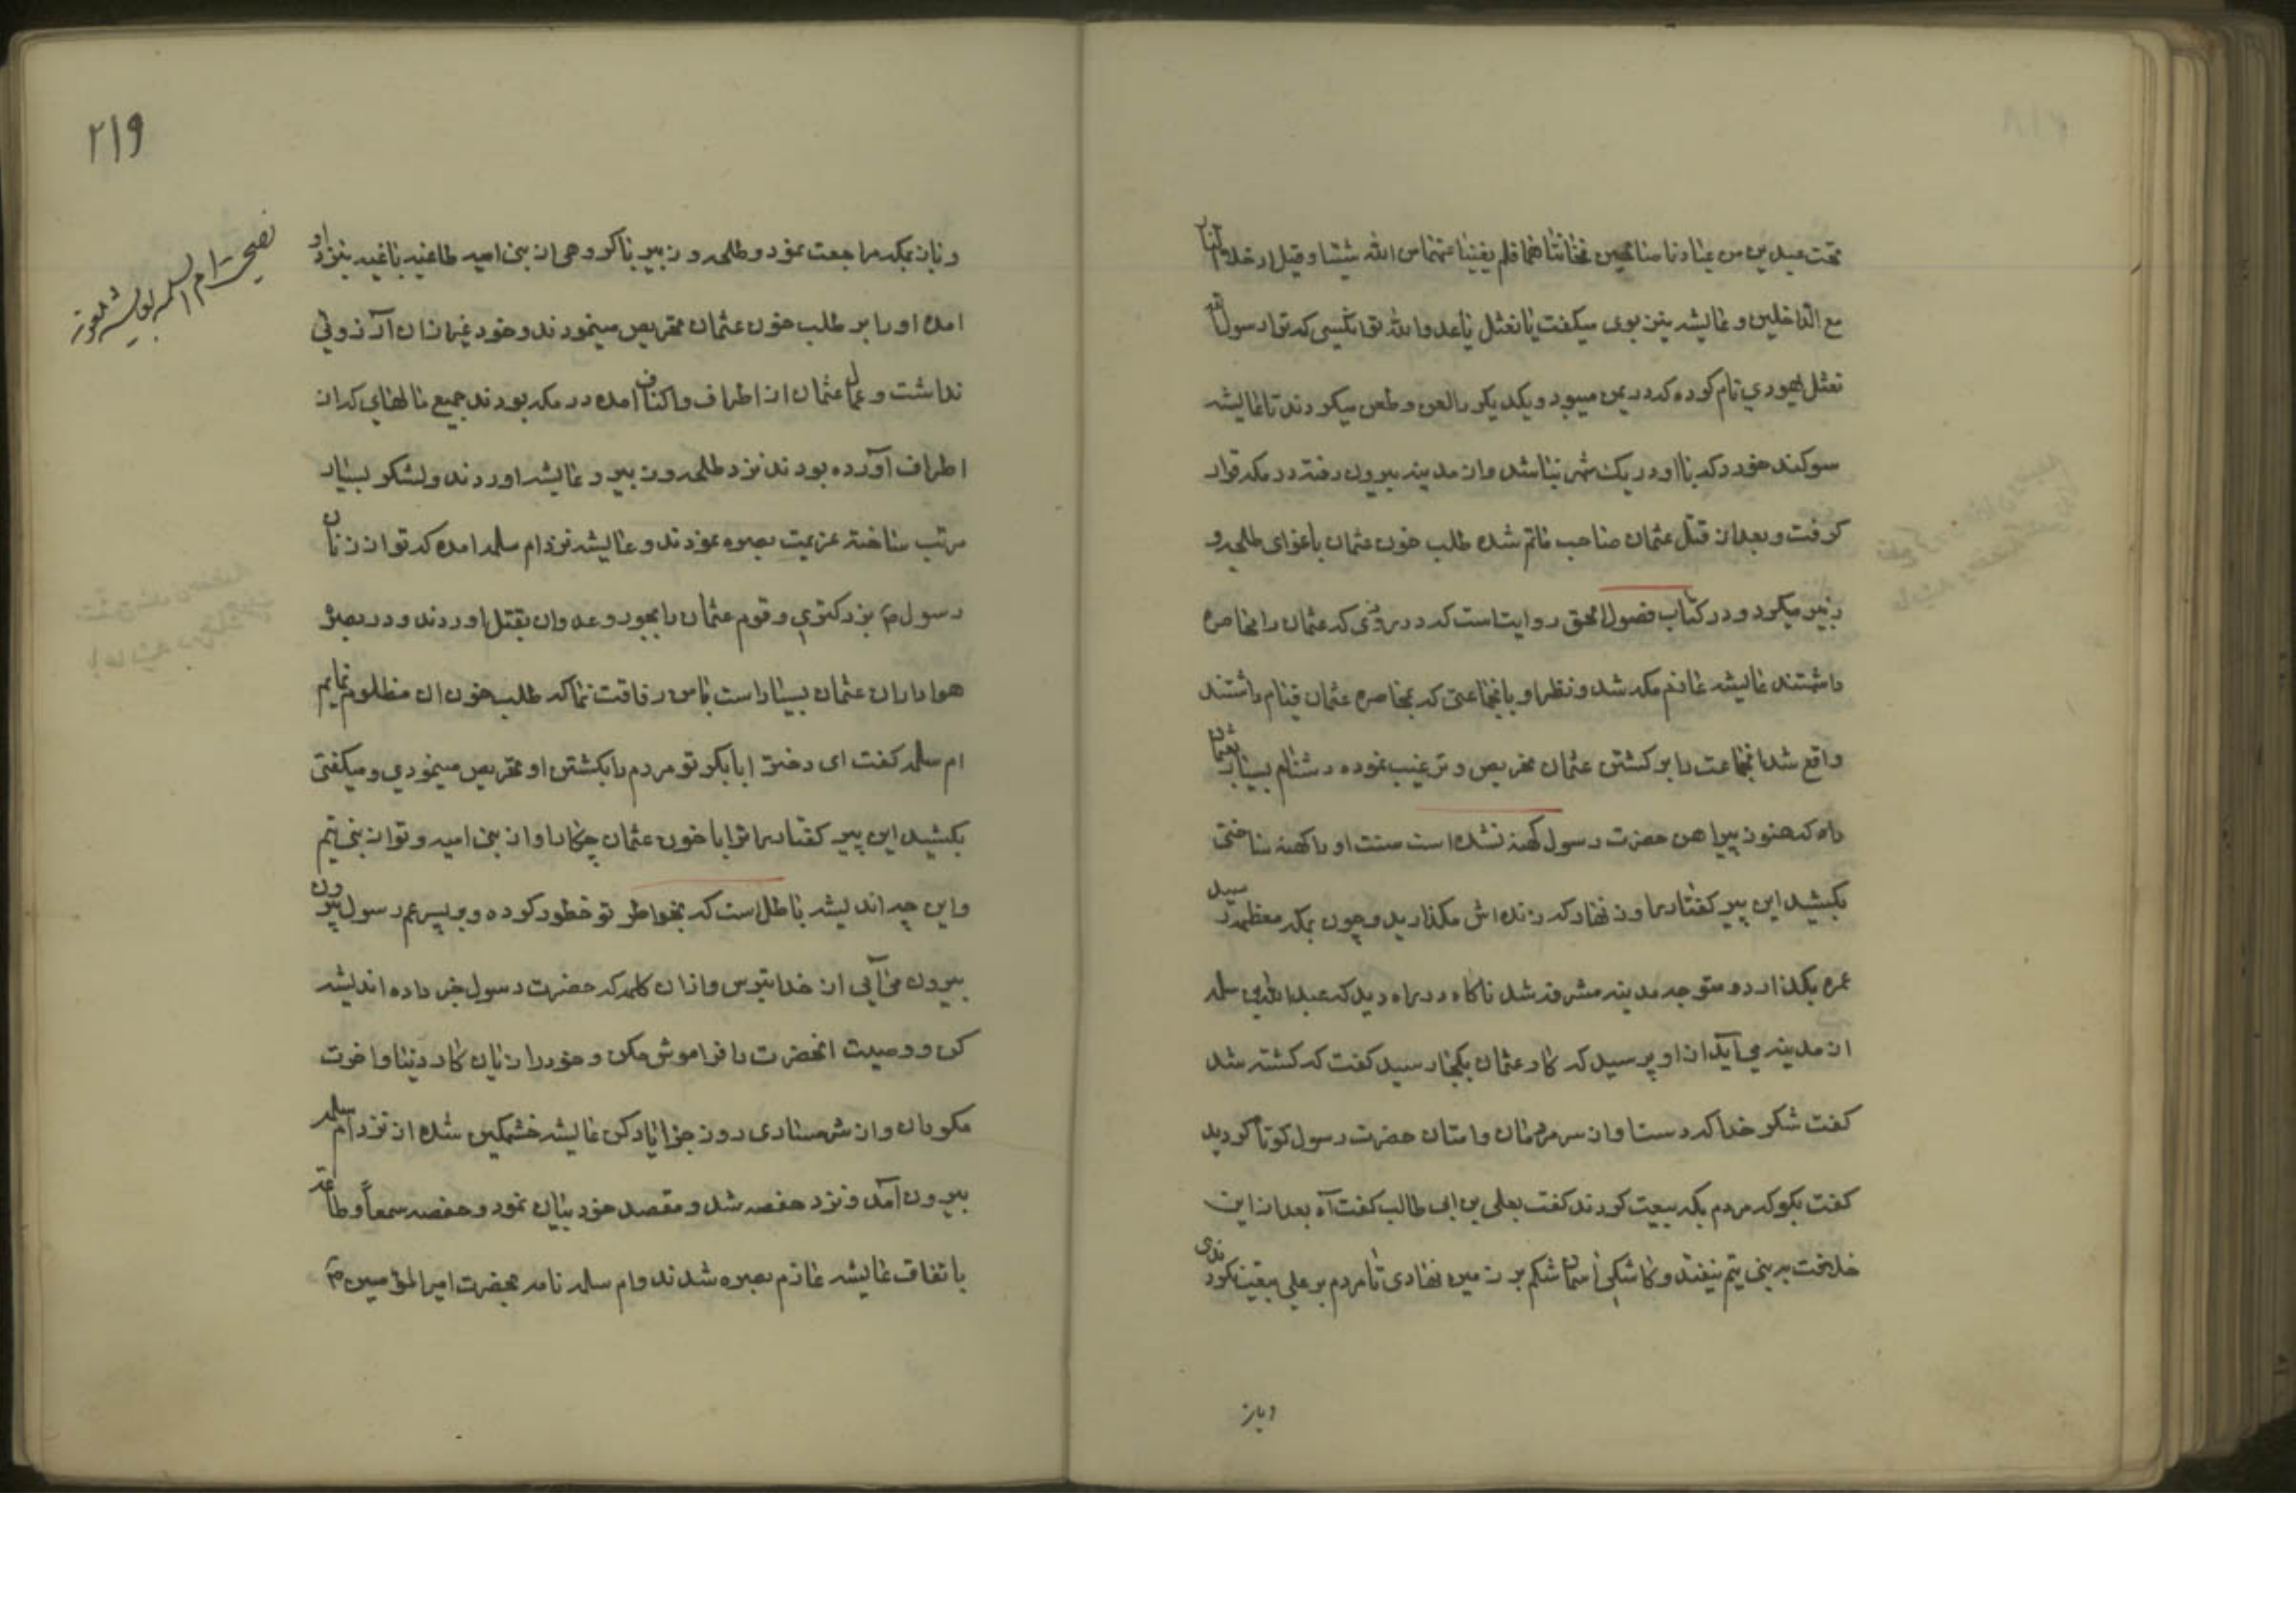 تحت عبدين من عبادنا صالحين فخانتاهما فلم يغنيا عنهما من الله شيئا و قيل ادخلا النار
مع الداخلين و عایشه نیز بوی میکفت یا نعثل یا عدو الله تو انکسی که ترا رسول الله
نعثل یهودی نام کرده که در یمن میبود و یکدیکر را لعن و طعن میکردند تا عایشه
سوکند خورد که با او در یک شهر نباشد و از مدینه بیرون رفته در مکه قرار
کرفت و بعد از قتل عثمان صاحب ماتم شده طلب خون عثمان باغوای طلحه و
زبیر میکرد و در کتاب فصول الحق روایتاست که در روزی که عثمان را محاصره
داشتند عایشه عازم مکه شد و نظر او بانجماعتی که بمحاصره عثمان قیام داشتند
واقع شد انجماعت را بر کشتن عثمان تحریص و ترغیب نموده دشنام بسیار بعثمان
داد که هنوز پیراهن حضرت رسول کهنه نشده است سنت او را کهنه ساختی
بکشید این پیر کفتار را و زنهار که زنده اش مکذارید و چون بمکه معظمه رسید
عمره بکذارد و متوجه مدینه مشرفه شد ناکاه در راه دید که عبد ابن ابی سلمه
از مدینه می آید از او پرسید که کار عثمان بکجا رسید کفت که کشته شد
کفت شکر خدا که دست او از سر مردمان و امتان حضرت رسول کوتاه کردید
کفت بکو که مردم بکه بیعت کردند کفت بعلی بن ابی طالب کفت آه بعد از این
خلافت به بنی تیم نیفتد و کاشکی آسمان شکم بر زمین نهادی تا مردم بر علی بیعت نکردندی
و باز
۲۱۹
نصیحت ام السلمه بعایشه
و باز بمکه مراجعت نمود و طلحه و زبیر با کروهی از بنی امیه طاغیه باغیه بنزد او
امده او را بر طلب خون عثمان تحریص مینمودند و خود غیر از ان آرزوئی
نداشت و عمال عثمان از اطراف و اکناف امده در مکه بودند جمیع مالهای که از
اطراف آورده بودند نزد طلحه و زبیر و عایشه اوردند و لشکر بسیار
مرتب ساخته عزیمت بصره نمودند و عایشه نزد ام سلمه امده که تو از زنان
رسول م بزرکتری و قوم عثمان را بجور و عدوان بقتل اوردند و در بصره
هواداران عثمان بسیار است با من رفاقت نما که طلب خون ان مظلوم نمایم
ام سلمه کفت ای دختر ابا بکر تو مردم را بکشتن او تحریص مینمودی و میکفتی
بکشید این پیر کفتار را ترا با خون عثمان چکار او از بنی امیه و تو از بنی تیم
و این چه اندیشه باطل است که بخواطر تو خطور کرده و بر پسر عم رسول بیرون
بیرون می آیی از خدا بترس و از ان کلمه که حضرت رسول خبر داده اندیشه
کن و وصیت انحضرت را فراموش مکن و خود را زیان کار دنیا و اخرت
مکردان و از شرمساری روز جزا یاد کن عایشه خشمکین شده از نزد ام سلمه
بیرون آمد و نزد حفصه شد و مقصد خود بیان نمود و حفصه سمعاً و طاعة
باتفاق عایشه عازم بصره شدند و ام سلمه نامه بحضرت امیر المؤمنین م